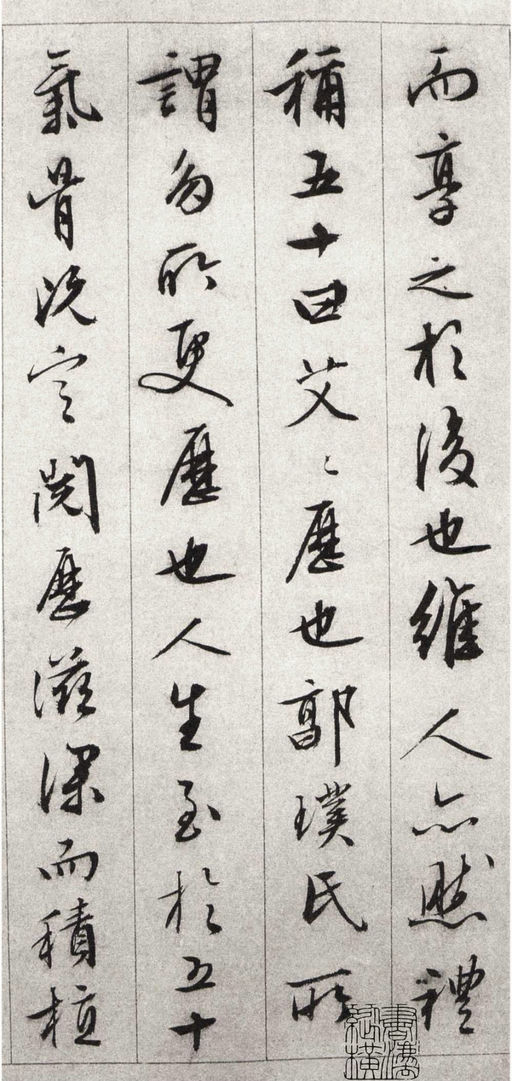 而享之於後也維人亦然禮
稱五十曰艾〻歷也郭璞氏所
謂多所更歷也人生至於五十
氣骨既定閱歷滋深而積植
書法縱橫